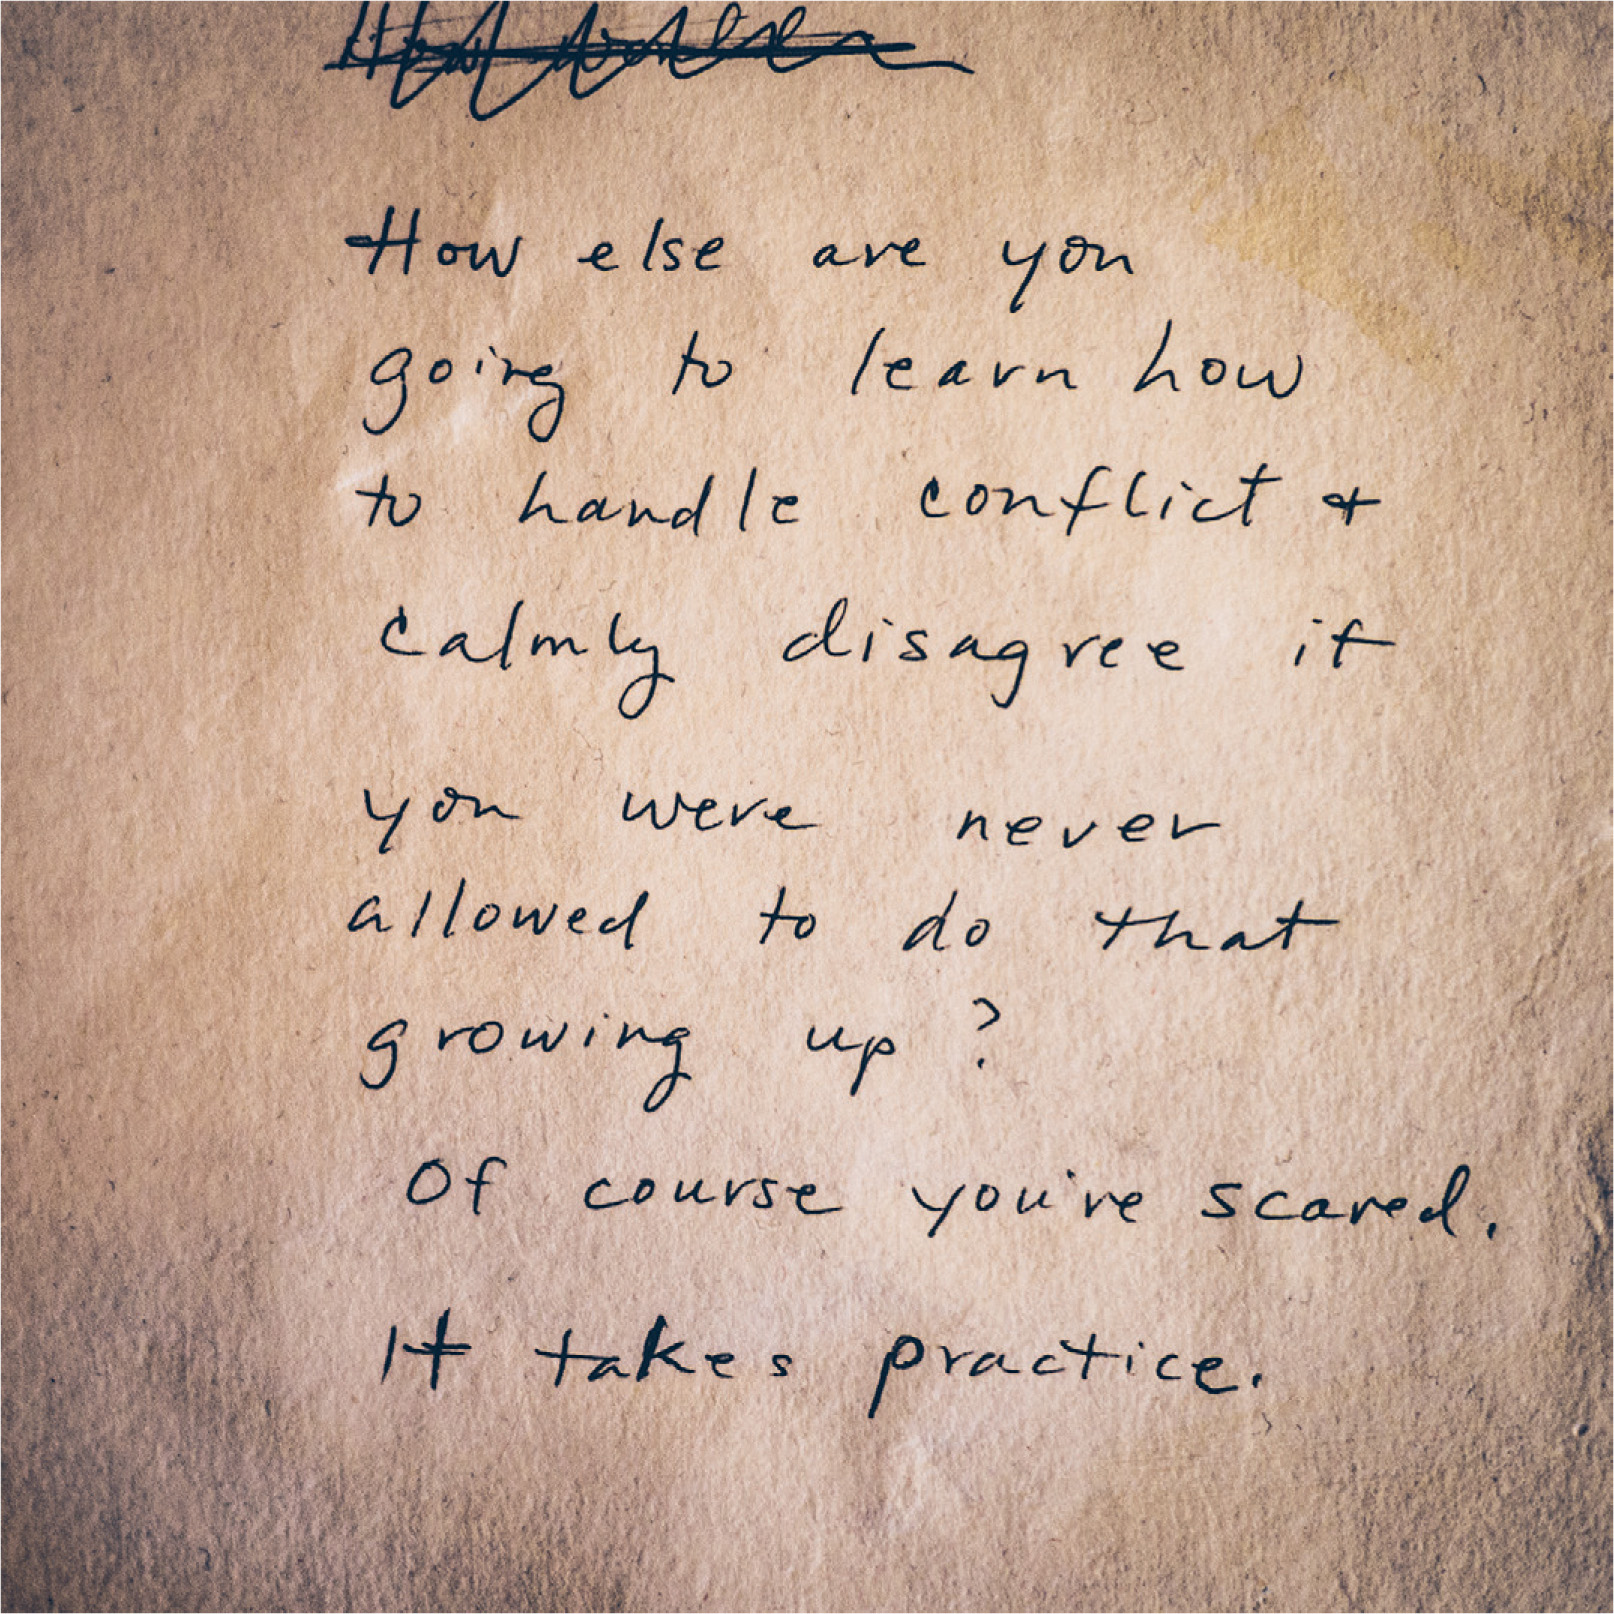 How else are you
going to learn how
to handle conflict +
calmly disagree if
you were never
allowed to do that
growing up?
Of course you're scared.
It takes practice.